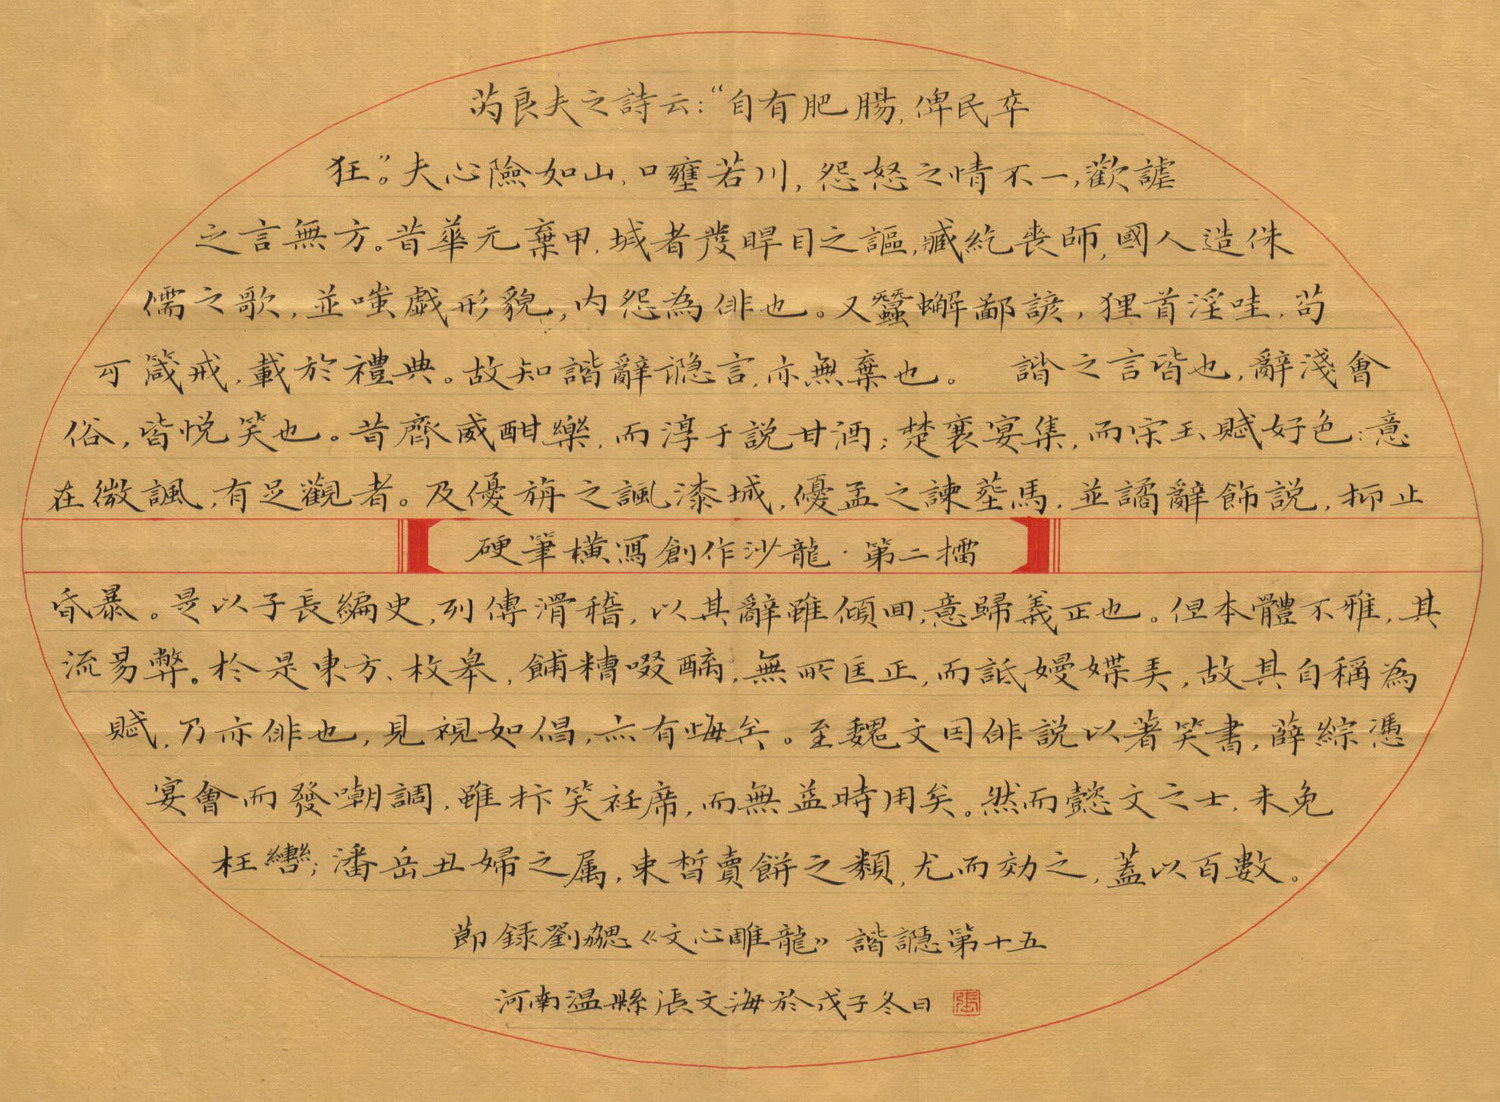 芮良夫之詩云：“自有肥腸，俾民卒
狂”。夫心險如山，口壅若川，怨怒之情不一，歡謔
之言無方。昔華元棄甲，城者發睅目之謳，臧紇喪師，國人造侏
儒之歌，並嗤戲形貌，内怨為俳也。又蠶蠏鄙諺，狸首淫哇，茍
可箴戒，載於禮典。故知諧辭讔言，亦無棄也。 諧之言皆也，辭淺會
俗，皆悦笑也。昔齊威酣樂，而淳于說甘酒；楚襄宴集，而宋玉賦好色：意
在微諷，有足觀者。及優旃之諷漆城，優孟之諫葬馬，並譎辭飾說，抑止
硬筆橫寫創作沙龍·第二擂
昏暴。是以子長編史，列傳滑稽，以其辭雖傾回，意歸義正也。但本體不雅，其
流易弊。於是東方、枚皋，餔糟啜醨，無所匡正，而詆嫚媟弄，故其自稱為
賦，乃亦俳也，見視如倡，亦有悔矣。至魏文因俳說以著笑書，薛綜憑
宴會而發嘲調，雖抃笑衽席，而無益時用矣。然而懿文之士，未免
枉轡；潘岳丑婦之属，束皙賣餅之類，尤而効之，蓋以百數。
節錄劉勰《文心雕龍》諧讔第十五
河南温縣張文海於戊子冬日
張